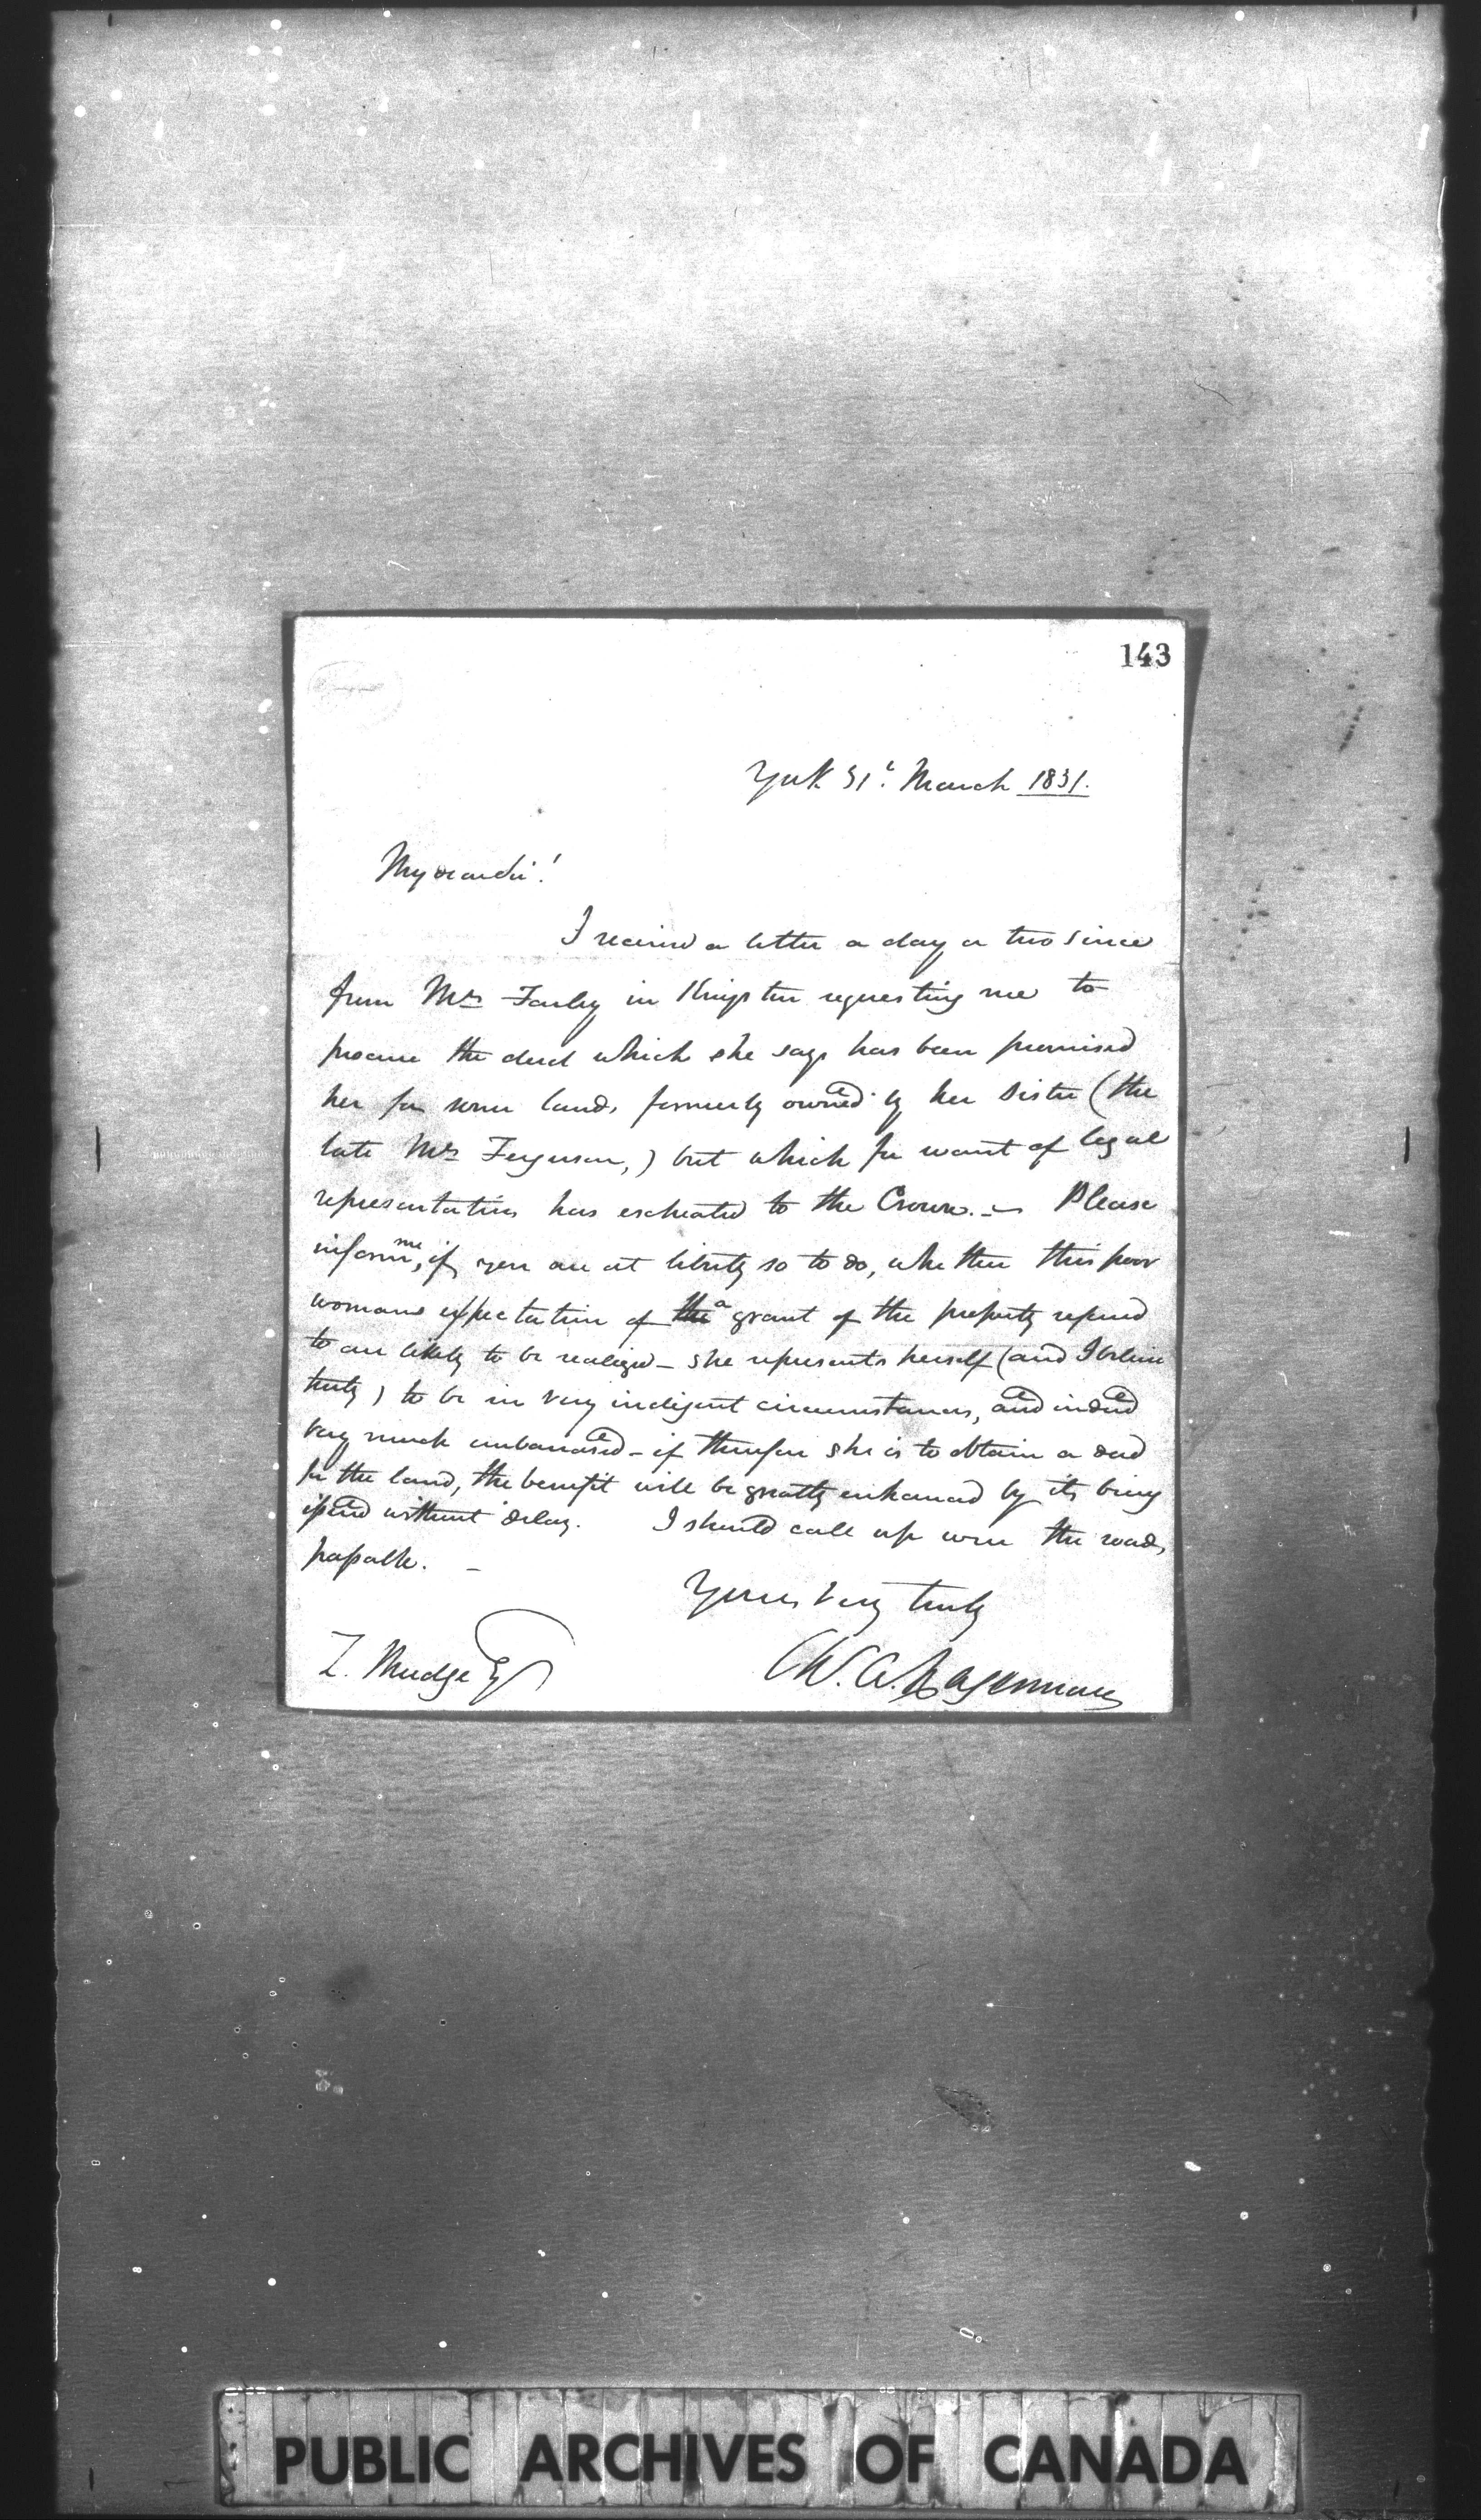 143
York 31st March 1831.
My dear Sir!
I received a letter a day or two since
from Mrs Farley in Kingston requesting me to
procure the deed which she says has been promised
her for some lands formerly owned by her sister (the
late Mrs Ferguson,) but which for want of legal
representation has escheated to the Crown. — Please
inform me, if you are at liberty so to do, whether this poor
womans expectation of the a grant of the property referred
to are likely to be realized – she represents herself (and I believe
truly) to be in very indigent circumstances, and indeed
very much embarrassed – if therefore she is to obtain a deed
for the land, the benefit will be greatly enhanced by its being
issued without delay. I should call up were the roads
passable. –
Yours very truly
C.A. Hagerman
Z. Mudge Esqr
PUBLIC ARCHIVES OF CANADA